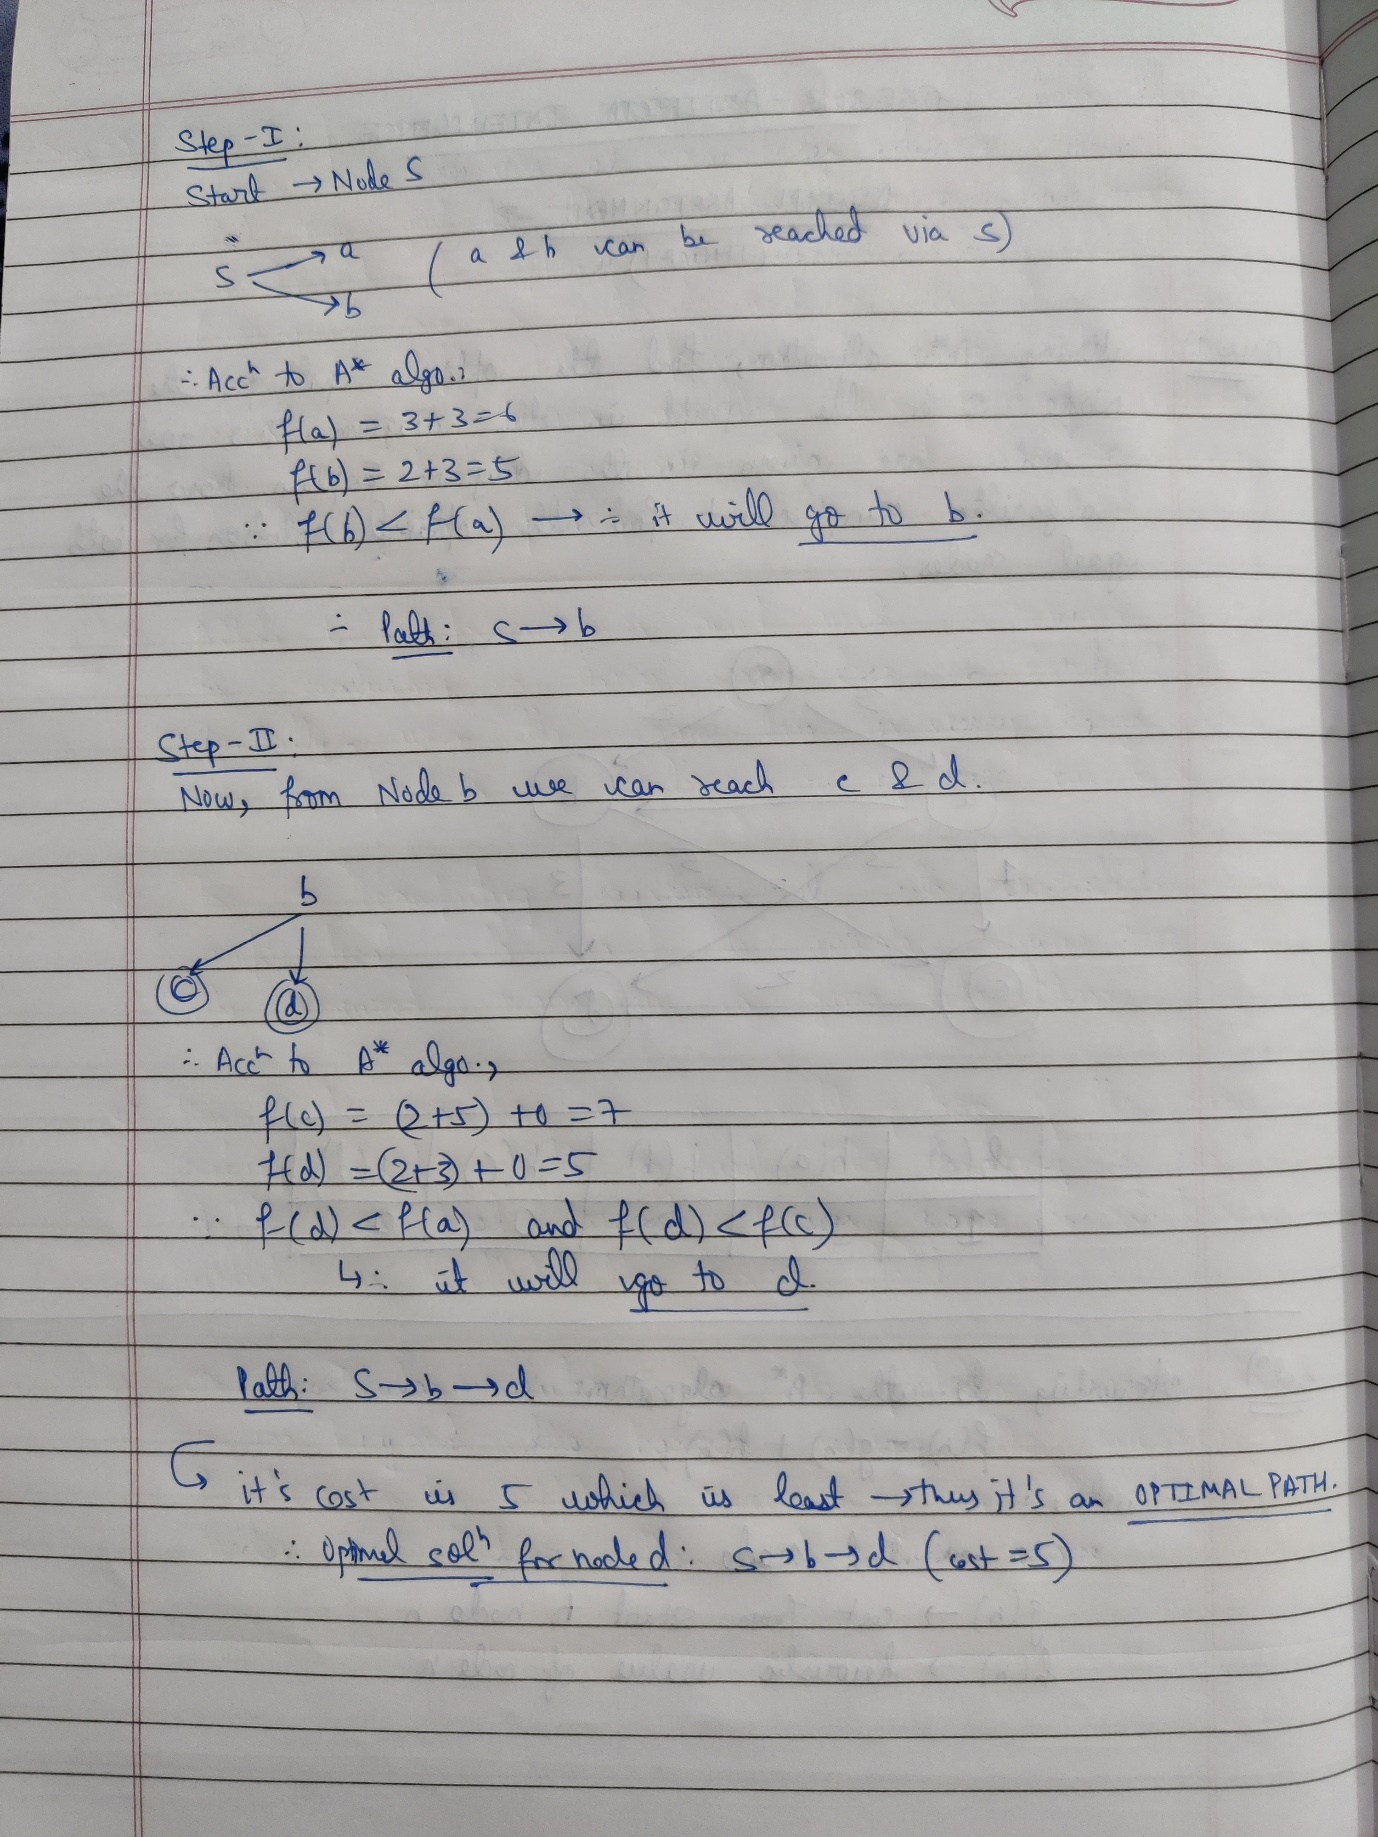 Step-I:
Start → Node S
S → a
→ b
( a & b can be reached via S)
∴ Accⁿ to A* algo.,
f(a) = 3+3=6
f(b) = 2+3=5
∵ f(b) < f(a) → ∴ it will go to b.
∴ Path: S→b
Step-II:
Now, from Node b we can reach c & d.
b
c d
∴ Accⁿ to A* algo.,
f(c) = (2+5) +0 =7
f(d) =(2+3) + 0=5
∵ f(d) < f(a) and f(d) < f(c)
↳∴ it will go to d.
Path: S→b→d
it's cost is 5 which is least → thus it's an OPTIMAL PATH.
∴ Optimal solⁿ for node d: S→b→d (cost =5)